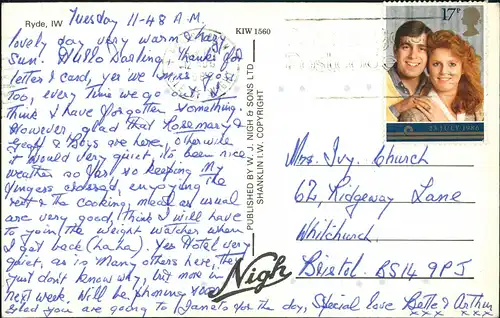 Ryde, IW
Tuesday 11-48 A.M.
lovely day very warm & hazy
Sun. Hullo Darling, thanks for
letter & card, yes we miss you
too, every time we go out, I
think I have forgotten something.
However, glad that Rosemary &
Geoff & Boys are here, otherwise
it would very quiet, its been nice
weather so far so keeping My
fingers crossed, enjoying the
rest & the cooking, meals as usual
are very good, think I will have
to join the weight watchers when
I get back (ha ha). Yes Hotel very
quiet, as in Many others here, they
just don't know why, but more in
next week. Will be phoning soon
Glad you are going to Janets for the day, Special love Bette & Arthur
xxx xxx
KIW 1560
PUBLISHED BY W. J. NIGH & SONS LTD
SHANKLIN I.W. COPYRIGHT
Nigh
17P
23 JULY 1986
Mrs. Ivy. Church
62, Ridgeway Lane
Whitchurch
Bristol. BS14 9PJ